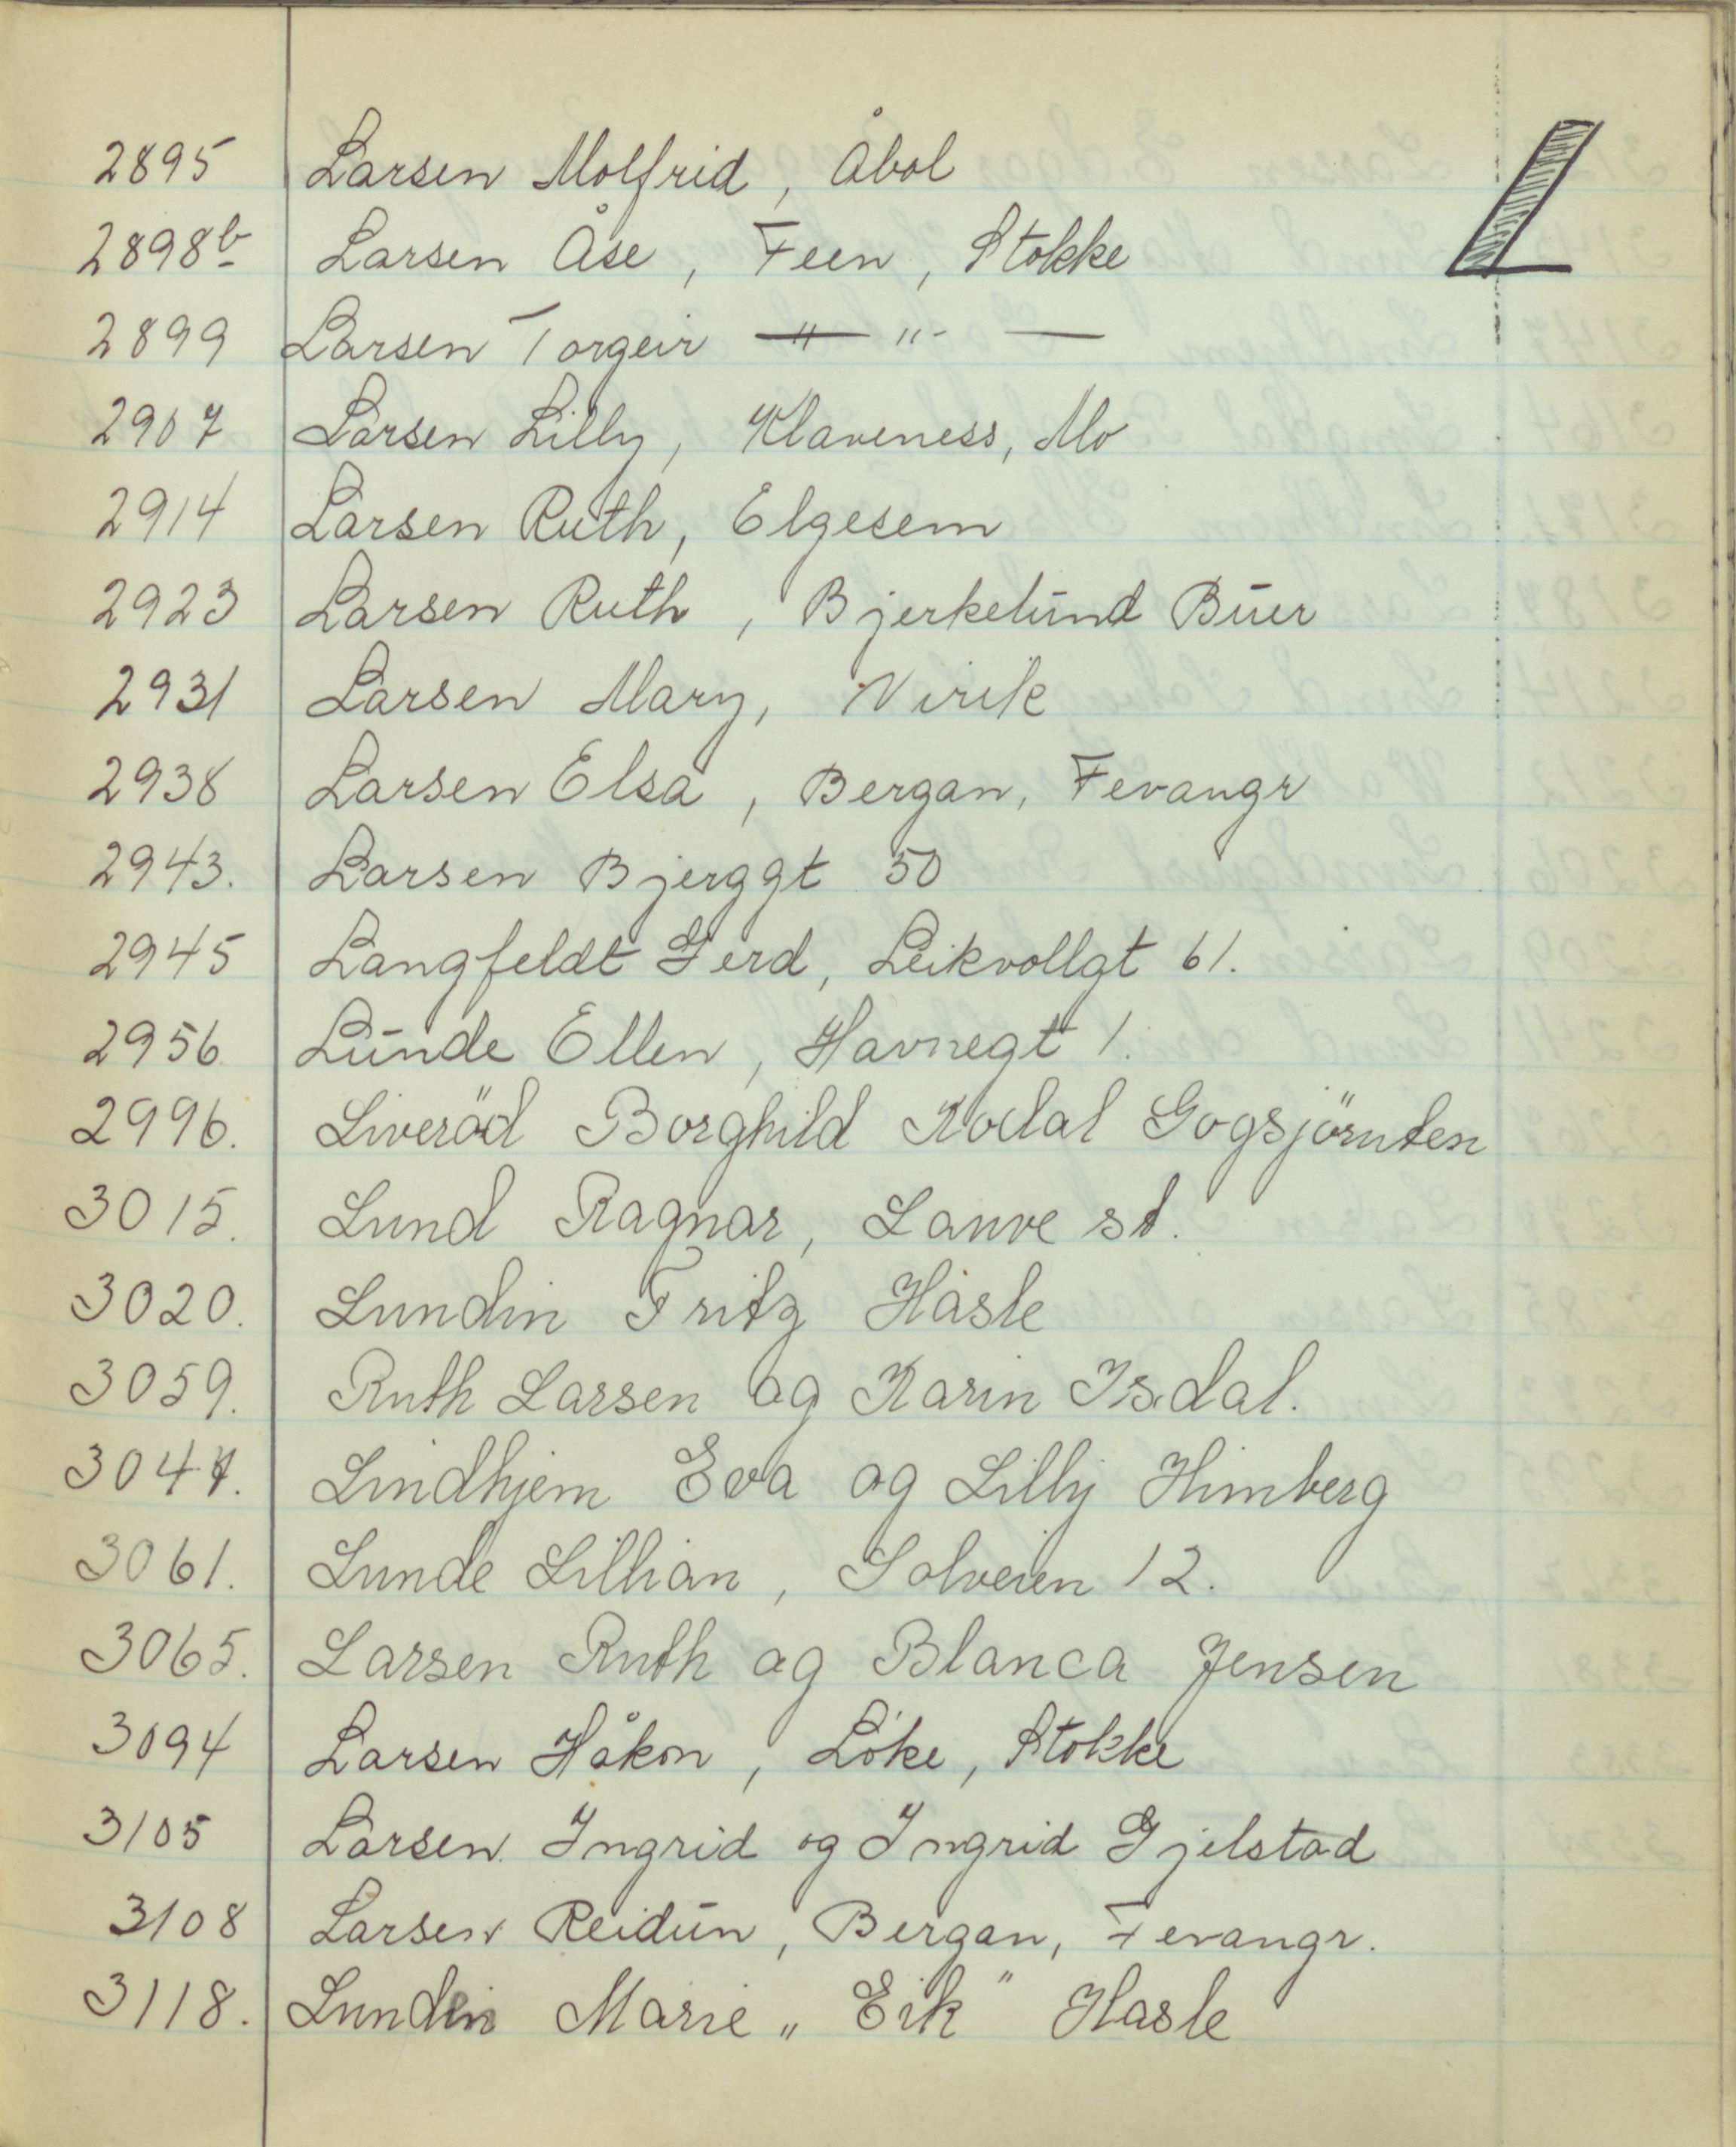 L
2895 Larsen Molfrid, Åbol
2898b Larsen Åse, Feen, Stokke
2899 Larsen Torgeir — " — " — —
2907 Larsen Lilly, Klaveness, Mo
2914 Larsen Ruth, Elgesem
2923 Larsen Ruth, Bjerkelund Buer
2931 Larsen Mary, Virik
2938 Larsen Elsa, Bergan, Fevangr
2943. Larsen Bjerggt 50
2945 Langfeldt Gerd, Leikvollgt 61.
2956 Lunde Ellen, Havnegt 1.
2996. Liveröd Borghild Kodal Gogsjörnten
3015. Lund Ragnar, Lauve st.
3020. Lundin Fritz Hasle
3059. Ruth Larsen og Karin Isdal.
3044. Lindhjem Eva og Lilly Himberg
3061. Lunde Lillian, Solveien 12.
3065. Larsen Ruth og Blanca Jensen
3094 Larsen Håkon, Löke, Stokke
3105 Larsen Ingrid og Ingrid Gjelstad
3108 Larsen Reidun, Bergan, Fevangr.
3118. Lundin Marie „Eik" Hasle